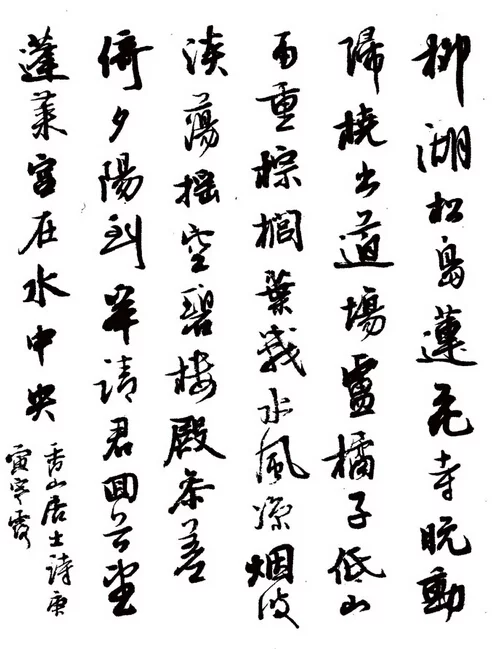 柳湖松島蓮花寺晚動
歸橈出道場盧橘子低山
雨重棕櫚葉戰水風凉烟波
淡蕩摇空碧樓殿參差
倚夕陽到岸請君回首望
蓬萊宫在水中央
香山居士詩庚
寅